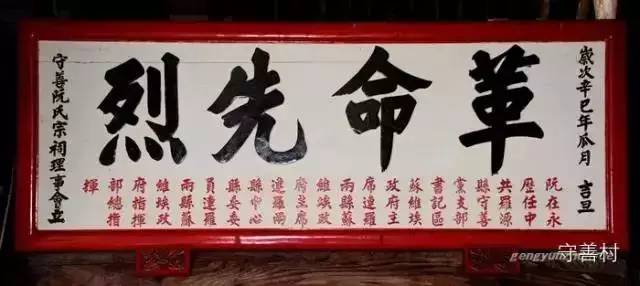 歲次辛巳年瓜月 吉旦
革命先烈
阮在永
歷任中
共羅源
縣守善
黨支部
書記區
蘇維埃
政府主
席連羅
兩縣蘇
維埃政
府主席
連羅兩
縣中心
縣委委
員連羅
兩縣蘇
維埃政
府指揮
部總指
揮
守善阮氏宗祠理事會立
守善村